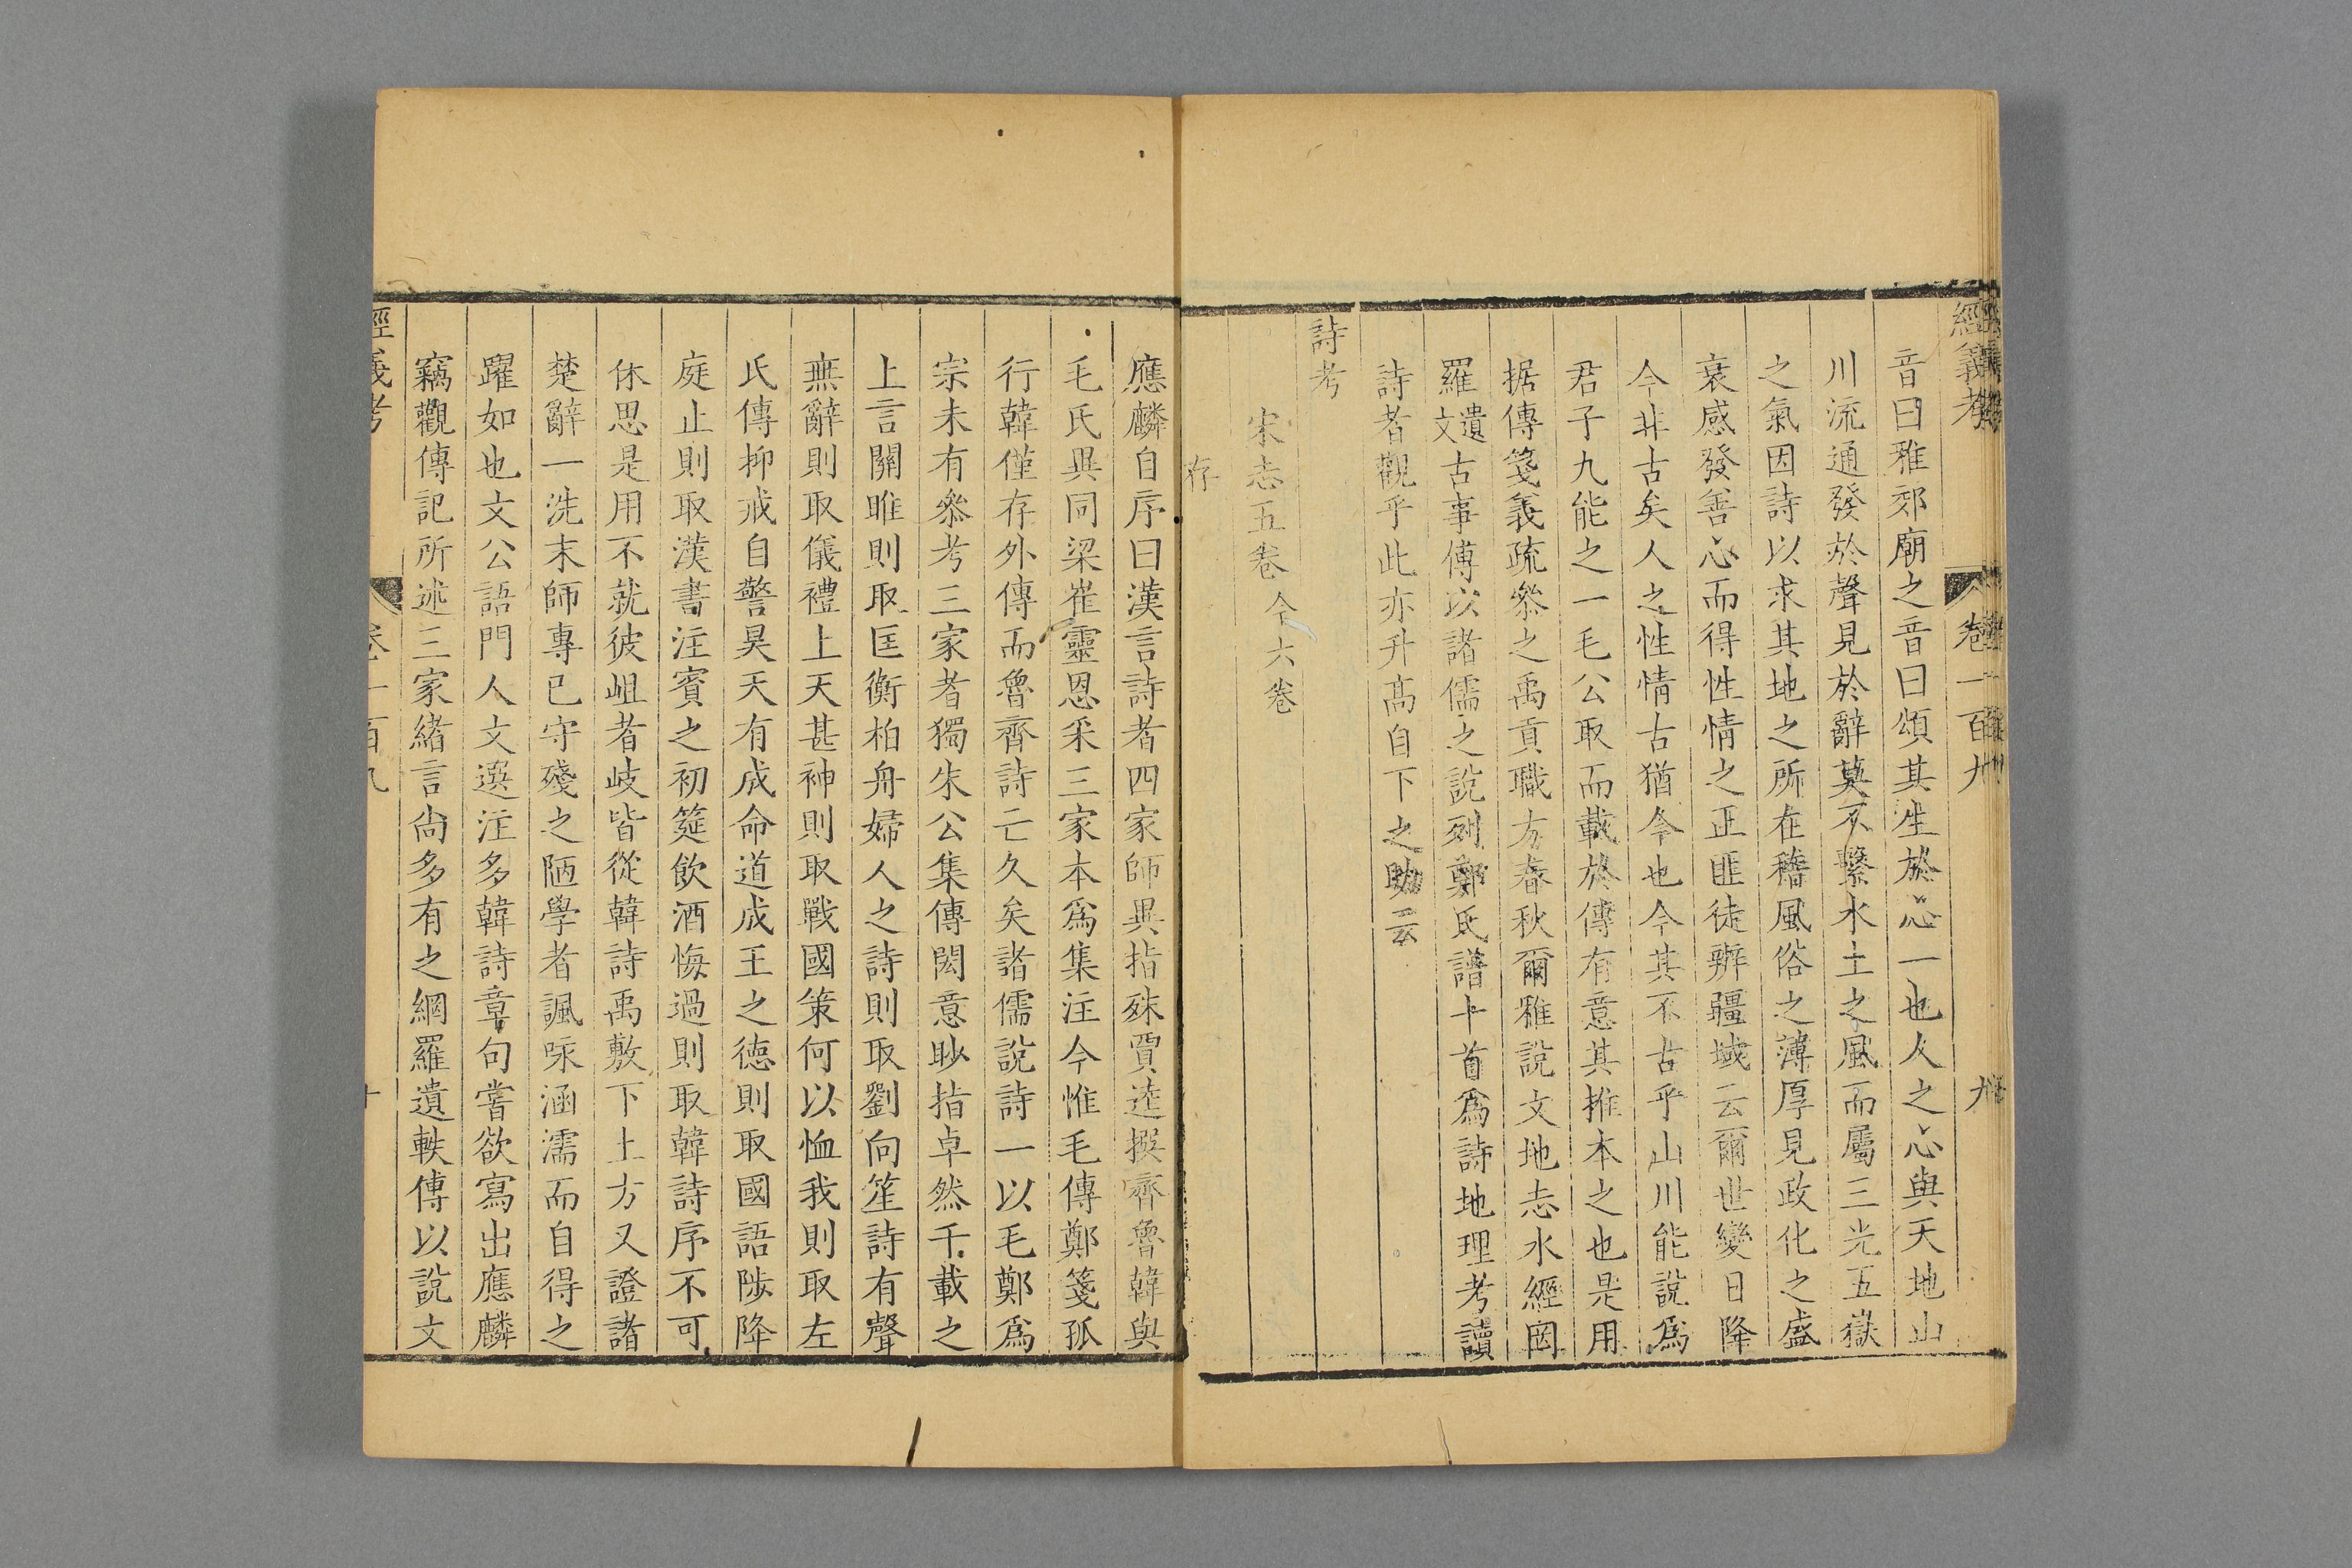 經義考 卷一百九 九
音曰雅郊廟之音曰頌其生於心一也人之心與天地山
川流通發於聲見於辭莫不繫水土之風而屬三光五嶽
之氣因詩以求其地之所在稽風俗之薄厚見政化之盛
衰感發善心而得性情之正匪徒辨疆域云爾世變日降
今非古矣人之性情古猶今也今其不古乎山川能說爲
君子九能之一毛公取而載於傳有意其推本之也是用
据傳箋義疏叅之禹貢職方春秋爾雅說文地志水經罔
羅遺文古事傅以諸儒之說列鄭氏譜十首爲詩地理考讀
詩者觀乎此亦升高自下之助云
詩考
宋志五卷今六卷
存
應麟自序曰漢言詩者四家師異指殊賈逵撰齊魯韓與
毛氏異同梁崔靈恩采三家本爲集注今惟毛傳鄭箋孤
行韓僅存外傳而魯齊詩亡久矣諸儒說詩一以毛鄭爲
宗未有叅考三家者獨朱公集傳閎意眇指卓然千載之
上言關雎則取匡衡柏舟婦人之詩則取劉向笙詩有聲
無辭則取儀禮上天甚神則取戰國策何以恤我則取左
氏傳抑戒自警昊天有成命道成王之德則取國語陟降
庭止則取漢書注賓之初筵飲酒悔過則取韓詩序不可
休思是用不就彼岨者岐皆從韓詩禹敷下土方又證諸
楚辭一洗末師專已守殘之陋學者諷咏涵濡而自得之
躍如也文公語門人文選注多韓詩章句嘗欲寫出應麟
竊觀傳記所述三家緒言尚多有之網羅遺軼傳以說文
經義考 卷一百九 十